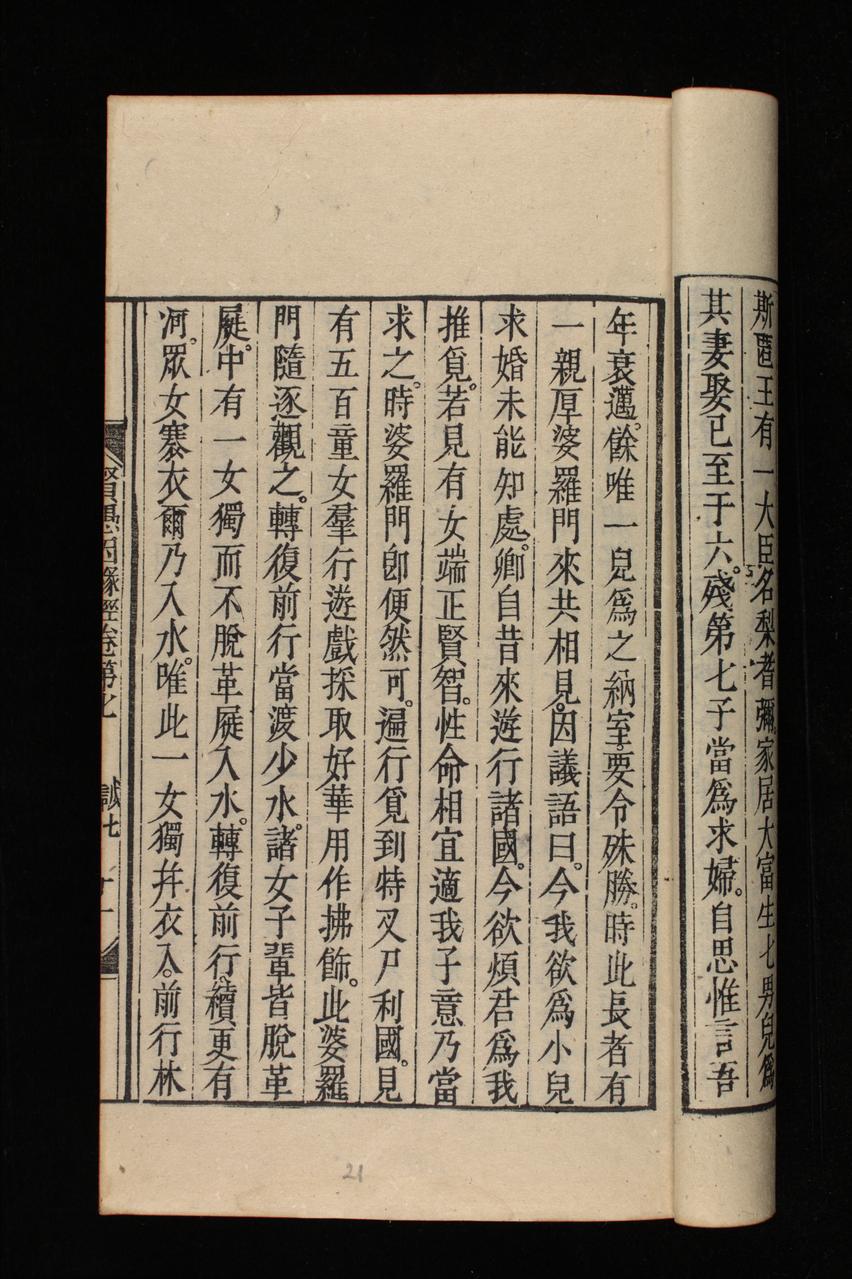 斯匿王有一大臣名梨耆彌家居大富生七男兒爲
其妻娶已至于六殘第七子當爲求婦。自思惟言吾
年衰邁。餘唯一兒爲之納室。要令殊勝。時此長者有
一親厚婆羅門來共相見。因議語曰。今我欲爲小兒
求婚未能知處。卿自昔來遊行諸國。今欲煩君爲我
推覓。若見有女端正賢智。性命相宜適我子意乃當
求之。時婆羅門卽便然可。遍行覓到特叉尸利國。見
有五百童女羣行遊戲採取好華用作拂飾。此婆羅
門隨逐觀之。轉復前行當渡少水。諸女子輩皆脫革
屣。中有一女獨而不脫革屣入水。轉復前行。續更有
河。眾女褰衣爾乃入水。唯此一女獨幷衣入。前行林
賢愚因緣經卷第七 誠七 十一
21